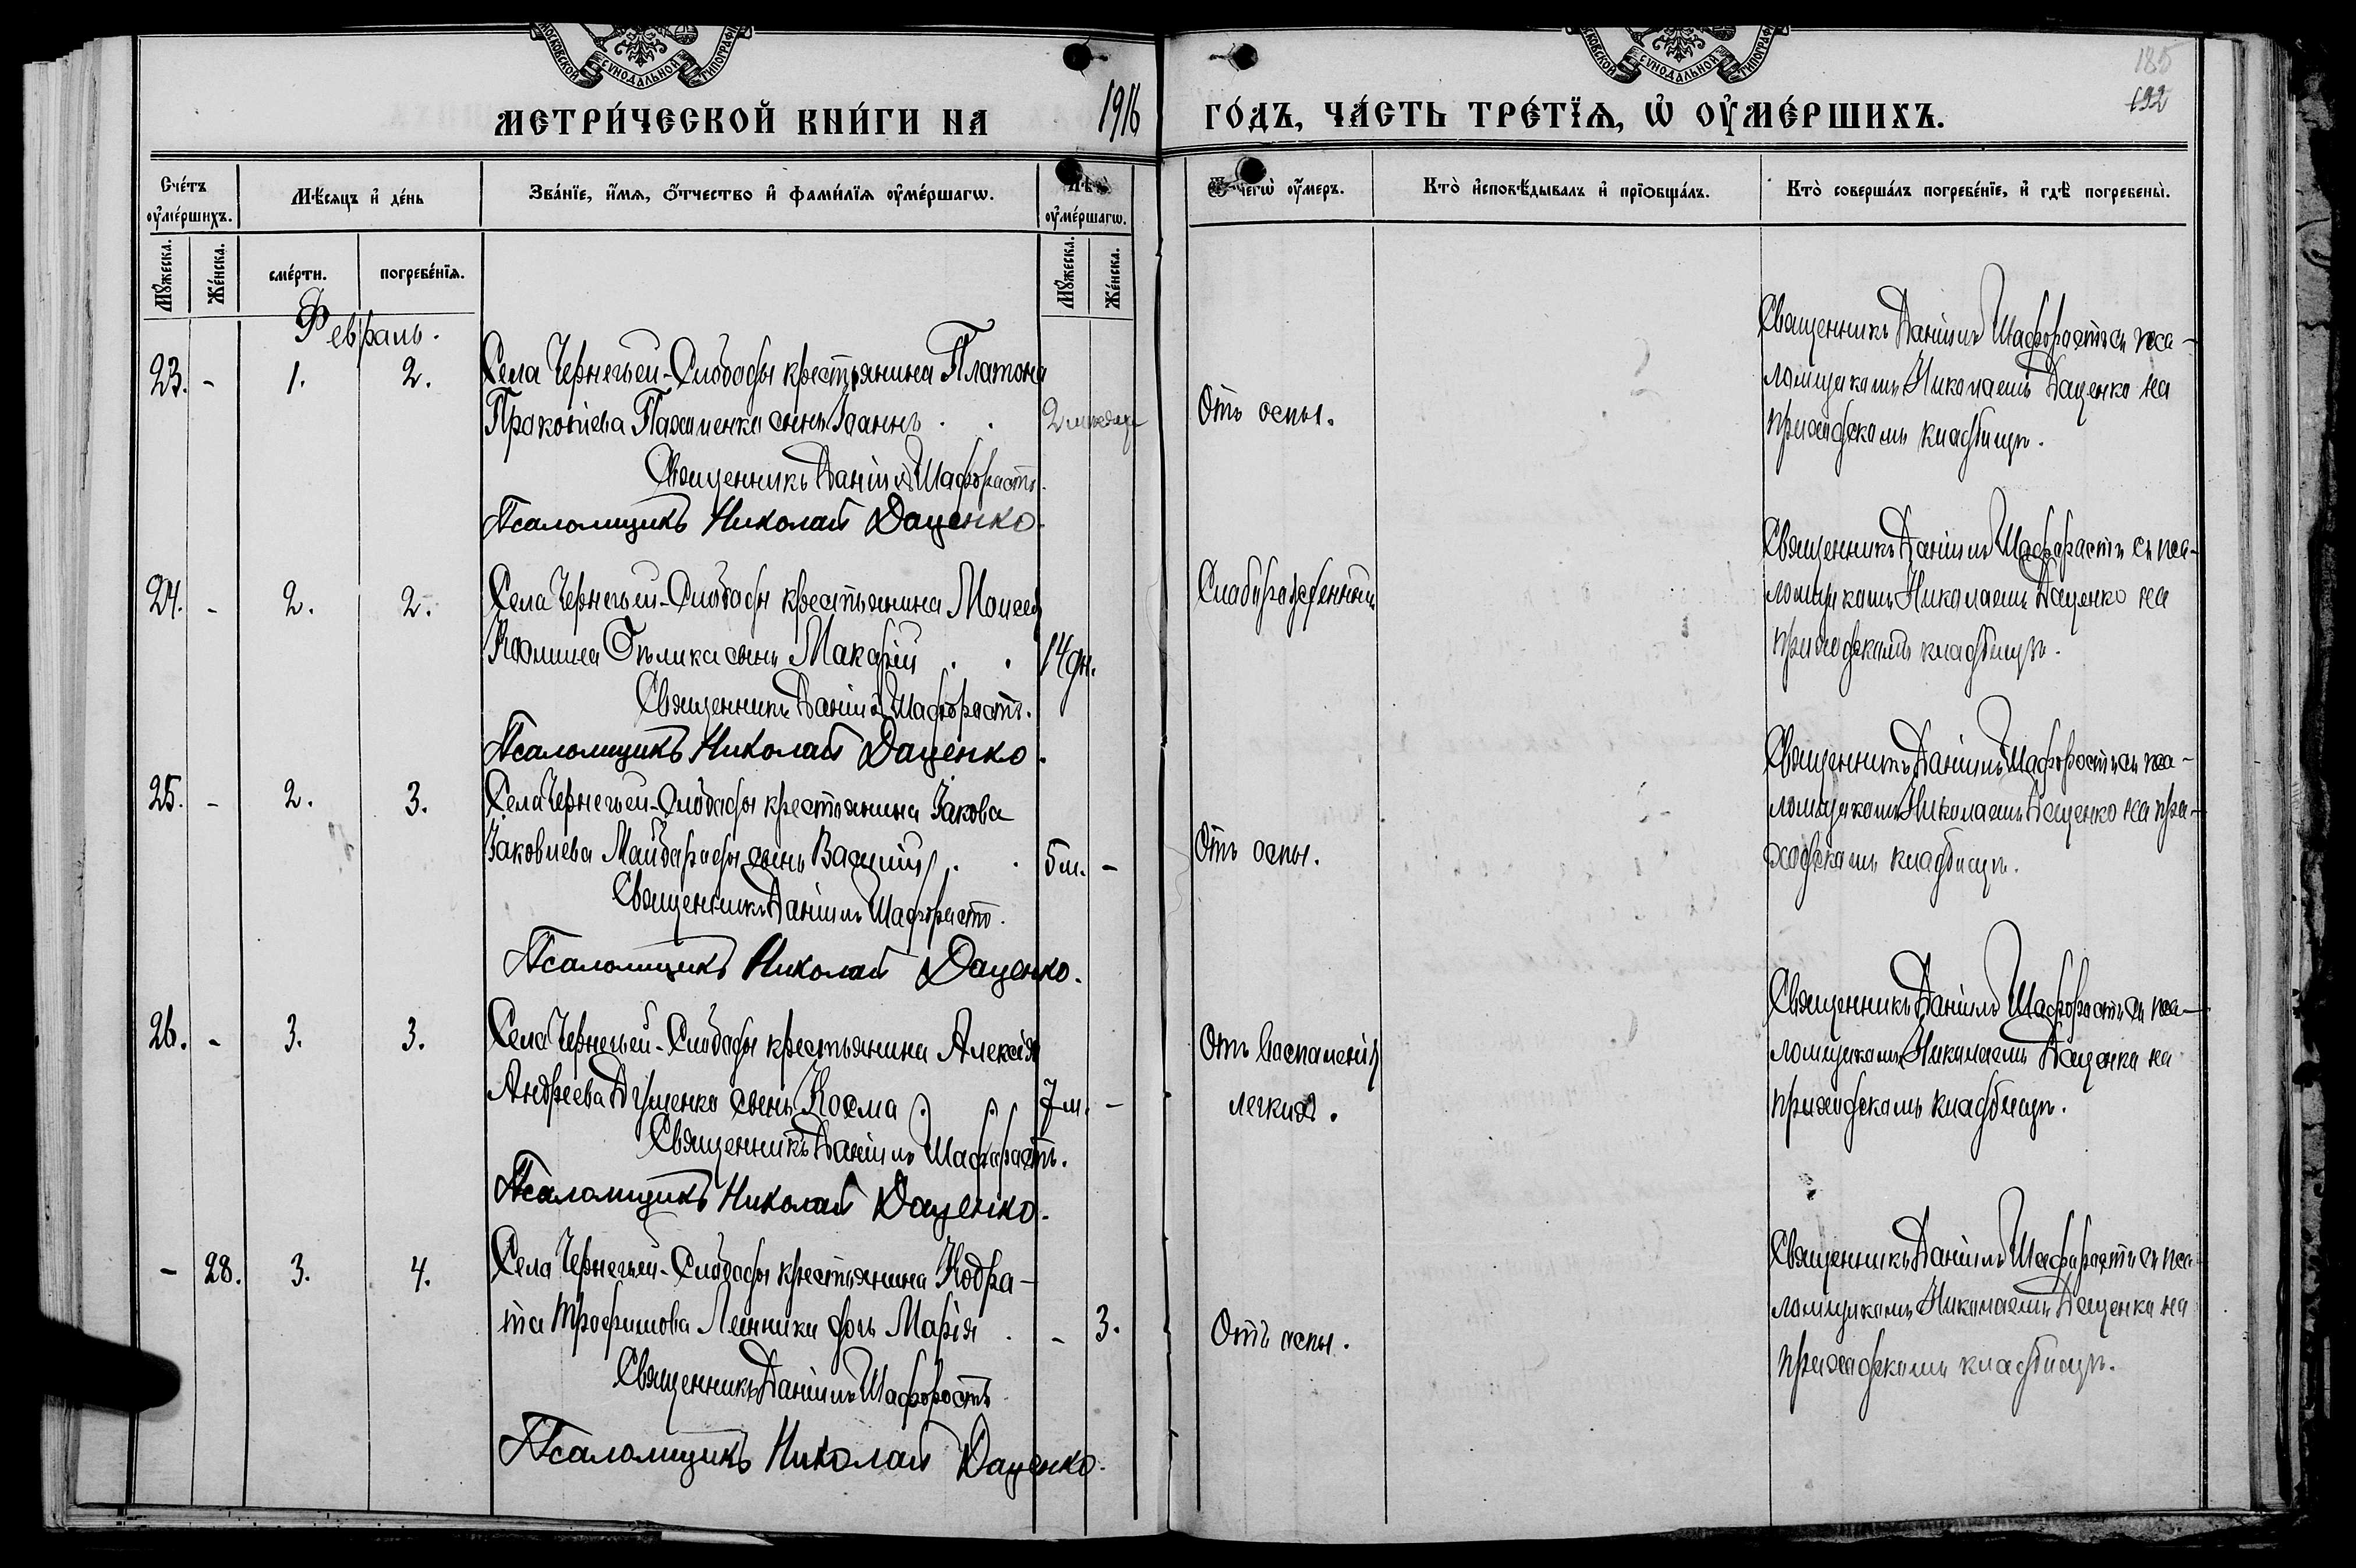 МОСКОВСКОЙ СѴНОДАЛЬНОЙ ТИПОГРАФІИ
МОСКОВСКОЙ СѴНОДАЛЬНОЙ ТИПОГРАФІИ
185
192
МЕТРИ́ЧЕСКОЙ КНИ́ГИ НА 1916 ГО́ДЪ, ЧА́СТЬ ТРЕ́ТЇѦ, Ѽ ОУ҆МЕ́РШИХЪ.
Сче́тъ оу҆ме́ршихъ.
Мѣ́сяцъ и҆ де́нь
Зва́нїе, и҆́мѧ, ѻ҆́тчество и҆ фами́лїѧ оу҆ме́ршагѡ.
оу҆ме́ршагѡ.
чегѡ̀ оу҆́меръ.
Кто̀ и҆сповѣ́дывалъ и҆ прїѡбща́лъ.
Кто̀ соверша́лъ погребе́нїе, и҆ гдѣ̀ погребены̀.
Мꙋ́жеска.
Же́нска.
сме́рти.
погребе́нїѧ.
Мꙋ́жеска.
Же́нска.
Февраль.
23. - 1. 2.
Села Чернечьей-Слободы крестьянина Платона
Прокопіева Пахменка сынъ Іоаннъ
2 месяца
Отъ оспы.
Священникъ Даніилъ Шафорастъ съ пса-
ломщикомъ Николаемъ Даценко на
приходскомъ кладбищѣ.
Священникъ Даніилъ Шафорастъ.
Псаломщикъ Николай Даценко.
24. - 2. 2.
Села Чернечьей-Слободы крестьянина Моисея
сынъ Макарій
14 дн.
Слаборожденный
Священникъ Даніилъ Шафорастъ съ пса-
ломщикомъ Николаемъ Даценко на
приходскомъ кладбищѣ.
Священникъ Даніилъ Шафорастъ.
Псаломщикъ Николай Даценко.
25. - 2. 3.
Села Чернечьей-Слободы крестьянина Іакова
Іаковлева Майбороды сынъ Василій
5 м. -
Отъ оспы.
Священникъ Даніилъ Шафорастъ съ пса-
ломщикомъ Николаемъ Даценко на при-
ходскомъ кладбищѣ.
Священникъ Даніилъ Шафорастъ.
Псаломщикъ Николай Даценко.
26. - 3. 3.
Села Чернечьей-Слободы крестьянина Алексія
Андреева Дущенко сынъ Косма
7 м. -
Отъ воспаленія
легкихъ.
Священникъ Даніилъ Шафорастъ съ пса-
ломщикомъ Николаемъ Даценко на
приходскомъ кладбищѣ.
Священникъ Даніилъ Шафорастъ.
Псаломщикъ Николай Даценко.
- 28. 3. 4.
Села Чернечьей-Слободы крестьянина Кодра-
та Трофимова Линника дочь Марія
- 3.
Отъ оспы.
Священникъ Даніилъ Шафорастъ съ пса-
ломщикомъ Николаемъ Даценко на
приходскомъ кладбищѣ.
Священникъ Даніилъ Шафорастъ
Псаломщикъ Николай Даценко.